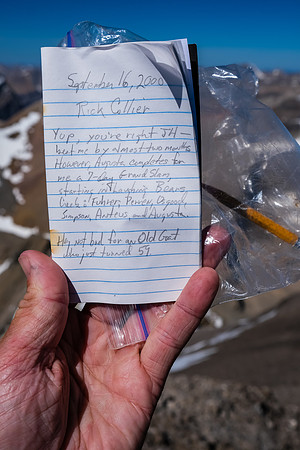 September 16, 2000
Rick Collier
Yup, you're right JH —
beat me by almost two months.
However, Augusta completes for
me a 7-day Grand Slam,
starting with Laughing Bears,
Condor, Fuhrer, Perren, Osgood,
Simpson, Anteus, and Augusta.
Hey, not bad for an Old Goat
who just turned 51